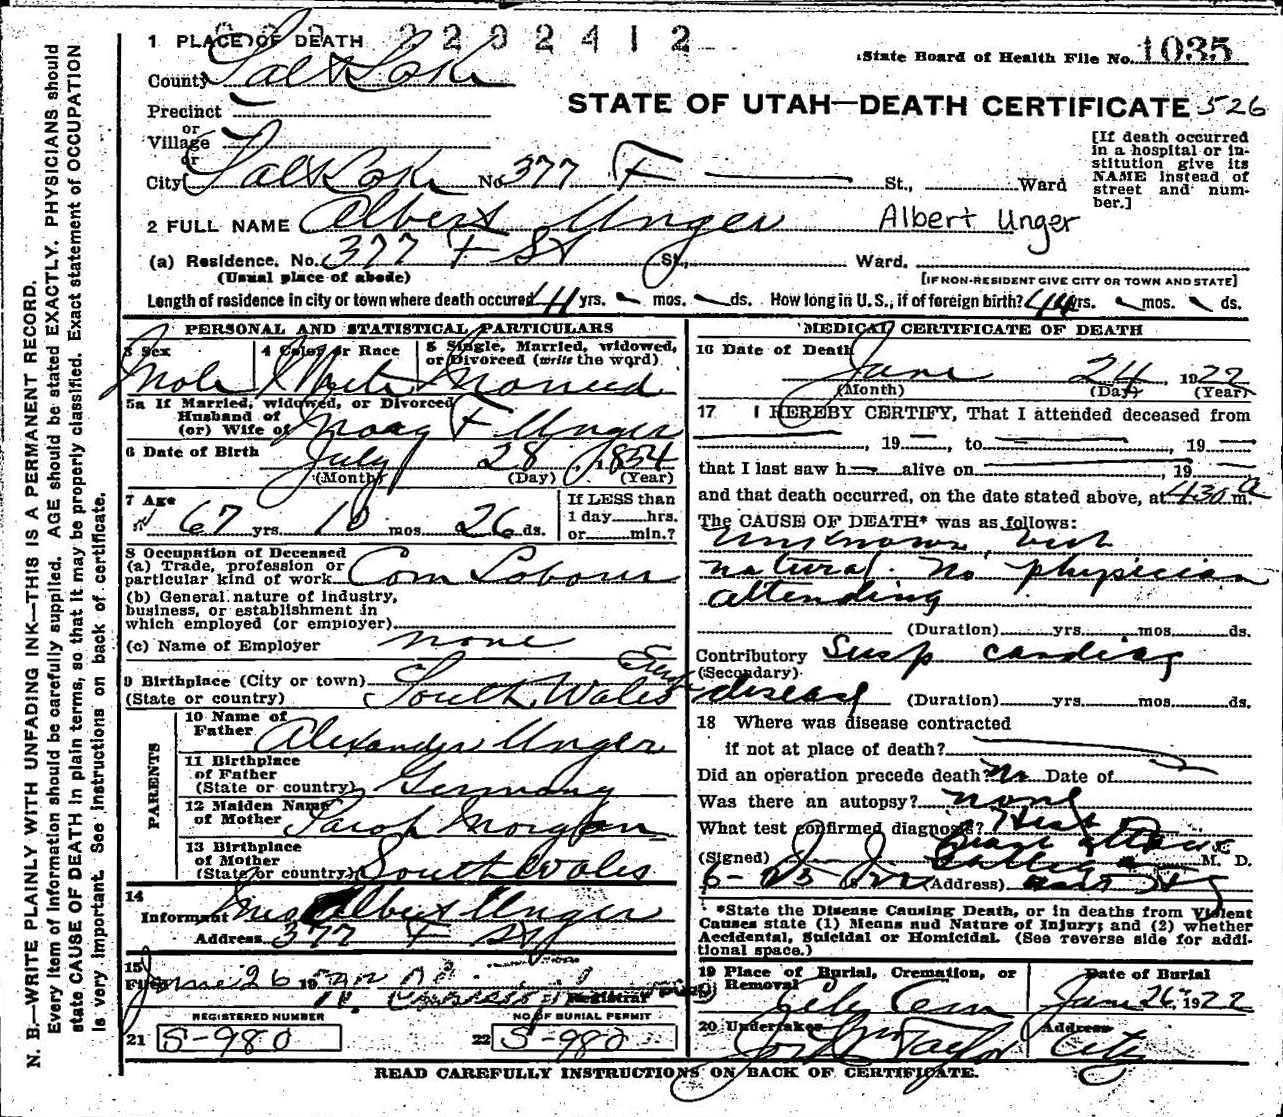 N. B.—WRITE PLAINLY WITH UNFADING INK—THIS IS A PERMANENT RECORD.
Every item of information should be carefully supplied. AGE should be stated EXACTLY. PHYSICIANS should
state CAUSE OF DEATH in plain terms, so that it may be properly classified. Exact statement of OCCUPATION
is very important. See instructions on back of certificate.
2202412
1 PLACE OF DEATH
State Board of Health File No. 1035
County Salt Lake
STATE OF UTAH—DEATH CERTIFICATE 526
Precinct
or
Village
or
City Salt Lake No. 377 F St., Ward
[If death occurred
in a hospital or in-
stitution give its
NAME instead of
street and num-
ber.]
2 FULL NAME Albert Unger Albert Unger
(a) Residence. No. 377 F St St., Ward.
(Usual place of abode)
[IF NON-RESIDENT GIVE CITY OR TOWN AND STATE]
Length of residence in city or town where death occured 41 yrs. - mos. - ds. How long in U.S., if of foreign birth? 44 yrs. - mos. - ds.
PERSONAL AND STATISTICAL PARTICULARS
3 Sex
Male
4 Color or Race
White
5 Single, Married, widowed,
or Divorced (write the word)
Married
5a If Married, widowed, or Divorced
Husband of
(or) Wife of Mary F Unger
6 Date of Birth
July 28, 1854
(Month) (Day) (Year)
7 Age
67 yrs. 10 mos. 26 ds.
If LESS than
1 day hrs.
or min.?
8 Occupation of Deceased
(a) Trade, profession or
particular kind of work Com Laborer
(b) General nature of industry,
business, or establishment in
which employed (or employer)
(c) Name of Employer none
9 Birthplace (City or town)
(State or country) South Wales Eng
PARENTS
10 Name of
Father Alexander Unger
11 Birthplace
of Father
(State or country) Germany
12 Maiden Name
of Mother Sarah Morgan
13 Birthplace
of Mother
(State or country) South Wales
14
Informant Mrs Albert Unger
Address 377 F St
15
Filed June 26 19
Registrar
REGISTERED NUMBER
21 S-980
NO. OF BURIAL PERMIT
22 S-980
MEDICAL CERTIFICATE OF DEATH
16 Date of Death
June 24, 1922
(Month) (Day) (Year)
17 I HEREBY CERTIFY, That I attended deceased from
, 19 —, to , 19 —
that I last saw h alive on , 19
and that death occurred, on the date stated above, at 430 a m.
The CAUSE OF DEATH* was as follows:
Unknown, but
natural. No physician
attending
(Duration) yrs. mos. ds.
Contributory Susp cardiac
(Secondary)
disease (Duration) yrs. mos. ds.
18 Where was disease contracted
if not at place of death?
Did an operation precede death? No Date of
Was there an autopsy? none
What test confirmed diagnosis? Hist
(Signed) M. D.
6-25 1922 (Address)
*State the Disease Causing Death, or in deaths from Violent
Causes state (1) Means and Nature of Injury; and (2) whether
Accidental, Suicidal or Homicidal. (See reverse side for addi-
tional space.)
19 Place of Burial, Cremation, or
Removal
City Cem
Date of Burial
June 26, 1922
20 Undertaker
Jos Wm Taylor
Address
City
READ CAREFULLY INSTRUCTIONS ON BACK OF CERTIFICATE.